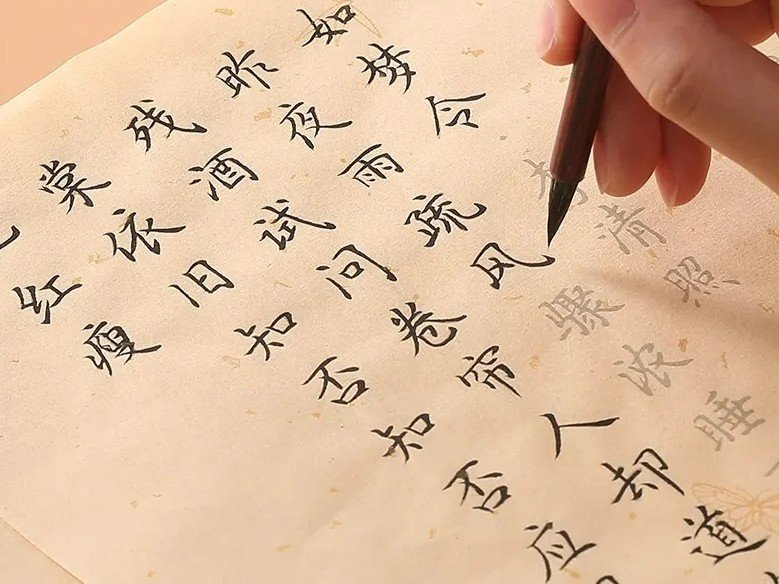 如梦令李清照
昨夜雨疏风骤浓睡
残酒试问卷帘人却道
棠依旧知否知否应
红瘦